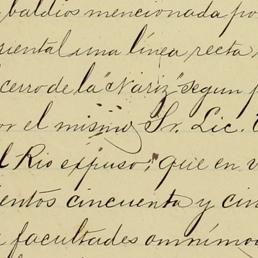 baldios mencionada po
una línea recta
cerro de la "Nariz" segun p
or el mismo Sr. Lic.
l Rio expuso; que en v
ientos cincuenta y cin
facultades omnímo